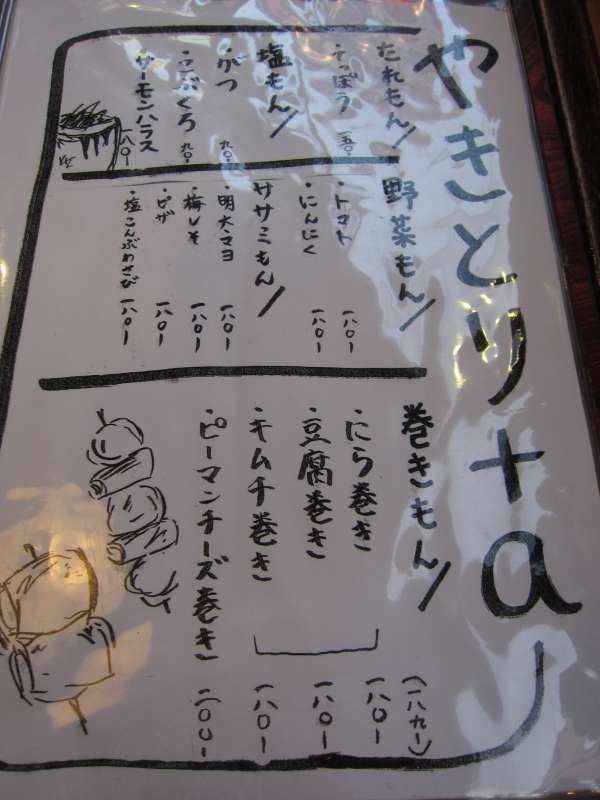 やきとり+α
たれもん!
・てっぽう 一五〇
塩もん!
・がつ 九〇
・こぶくろ 九〇
サーモンハラス 一八〇ー
野菜もん!
・トマト 一八〇ー
・にんにく 一八〇ー
ササミもん!
・明太マヨ 一八〇ー
・梅しそ 一八〇ー
・ピザ 一八〇ー
・塩こんぶわさび 一八〇ー
巻きもん!
・にら巻き 一八〇ー
・豆腐巻き 一八〇ー
・キムチ巻き 一八〇ー
・ピーマンチーズ巻き 二〇〇ー
(一八九ー)